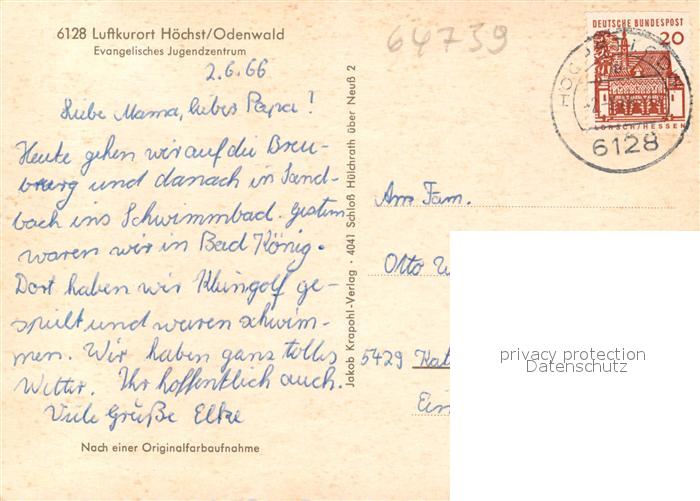 6128 Luftkurort Höchst/Odenwald
Evangelisches Jugendzentrum
2.6.66
Liebe Mama, liebes Papa!
Heute gehen wir auf die Breu-
burg und danach in Sand-
bach ins Schwimmbad. Gestern
waren wir in Bad König.
Dort haben wir Kleingolf ge-
spielt und waren schwim-
men. Wir haben ganz tolles
Wetter. Ihr hoffentlich auch.
Viele Grüße Elke
Nach einer Originalfarbaufnahme
Jakob Krapohl-Verlag · 4041 Schloß Hülchrath über Neuß 2
64739
DEUTSCHE BUNDESPOST
20
LORSCH/HESSEN
6128
An Fam.
Otto
5429 Kat
Ein
privacy protection
Datenschutz